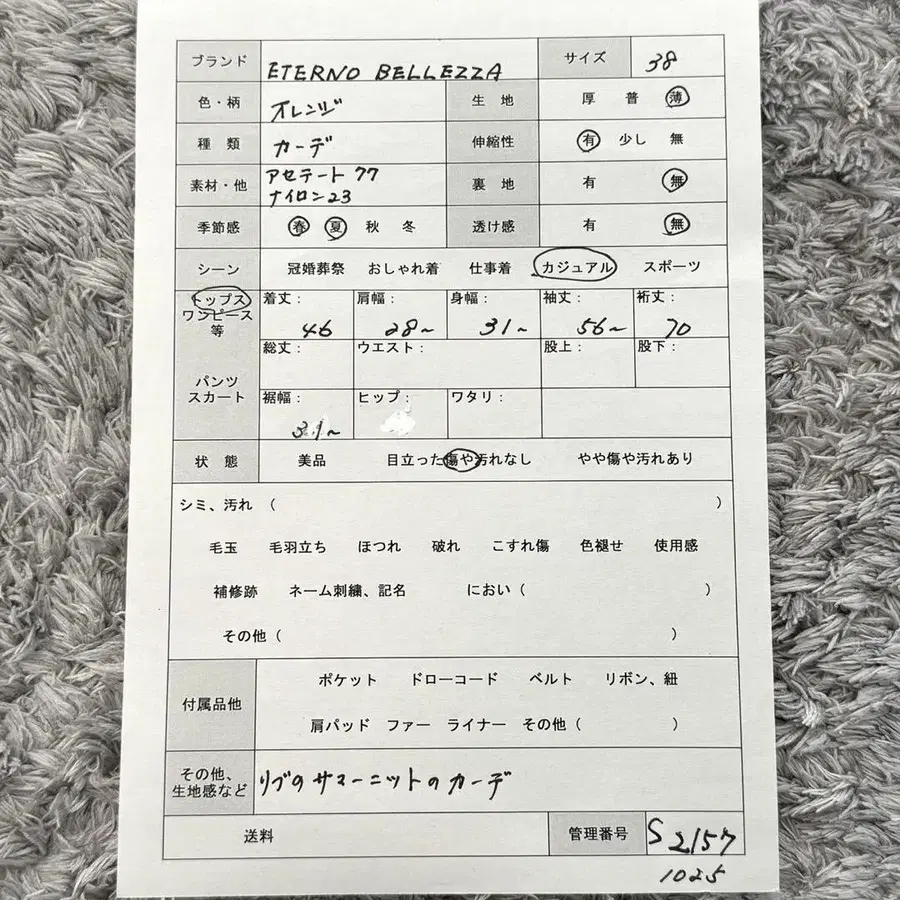 ブランド ETERNO BELLEZZA サイズ 38
色・柄 オレンジ 生 地 厚 普 薄
種 類 カーデ 伸縮性 有 少し 無
素材・他 アセテート 77
ナイロン23 裏 地 有 無
季節感 春 夏 秋 冬 透け感 有 無
シーン 冠婚葬祭 おしゃれ着 仕事着 カジュアル スポーツ
トップス
ワンピース
等
着丈: 肩幅: 身幅: 袖丈: 裄丈:
46 28~ 31~ 56~ 70
総丈: ウエスト: 股上: 股下:
パンツ
スカート
裾幅: ヒップ: ワタリ:
31~
状 態 美品 目立った傷や汚れなし やや傷や汚れあり
シミ、汚れ ( )
毛玉 毛羽立ち ほつれ 破れ こすれ傷 色褪せ 使用感
補修跡 ネーム刺繍、記名 におい ( )
その他 ( )
付属品他
ポケット ドローコード ベルト リボン、紐
肩パッド ファー ライナー その他 ( )
その他、
生地感など
リブのサマーニットのカーデ
送料 管理番号 S 2157
1025